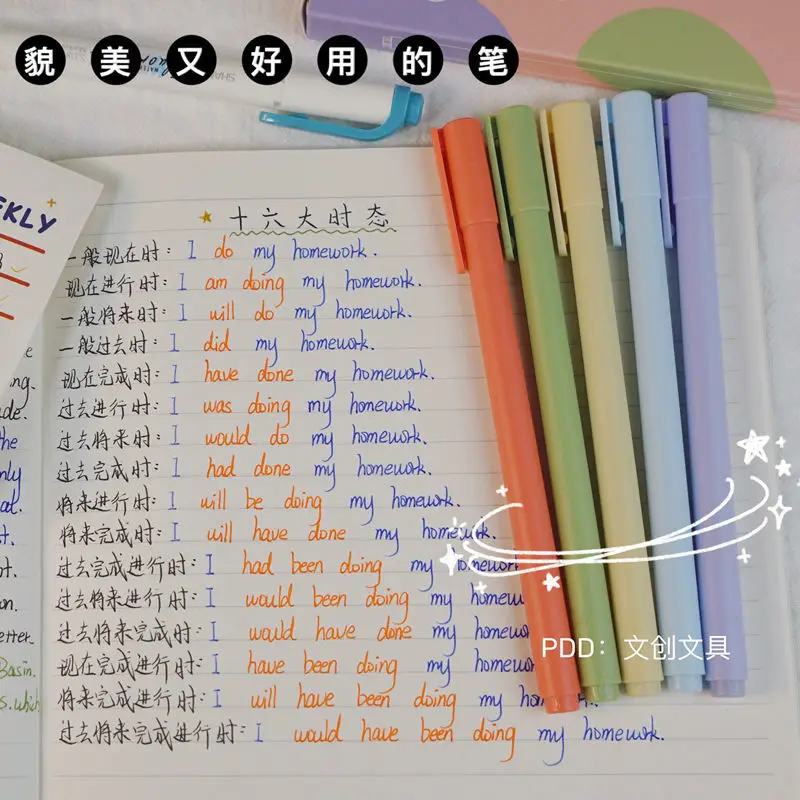 貌美又好用的笔
EKLY
十六大时态
一般现在时: I do my homework.
现在进行时: I am doing my homework.
一般将来时: I will do my homework.
一般过去时: I did my homework.
现在完成时: I have done my homework.
过去进行时: I was doing my homework.
过去将来时: I would do my homework.
过去完成时: I had done my homework.
将来进行时: I will be doing my homework.
将来完成时: I will have done my homework.
过去完成进行时: I had been doing my homewor
过去将来进行时: I would been doing my homew
过去将来完成时: I would have done my homew
现在完成进行时: I have been doing my homew
将来完成进行时: I will have been doing my ho
过去将来完成进行时: I would have been doing my homework.
the
etter.
Basin.
s. which
PDD：文创文具